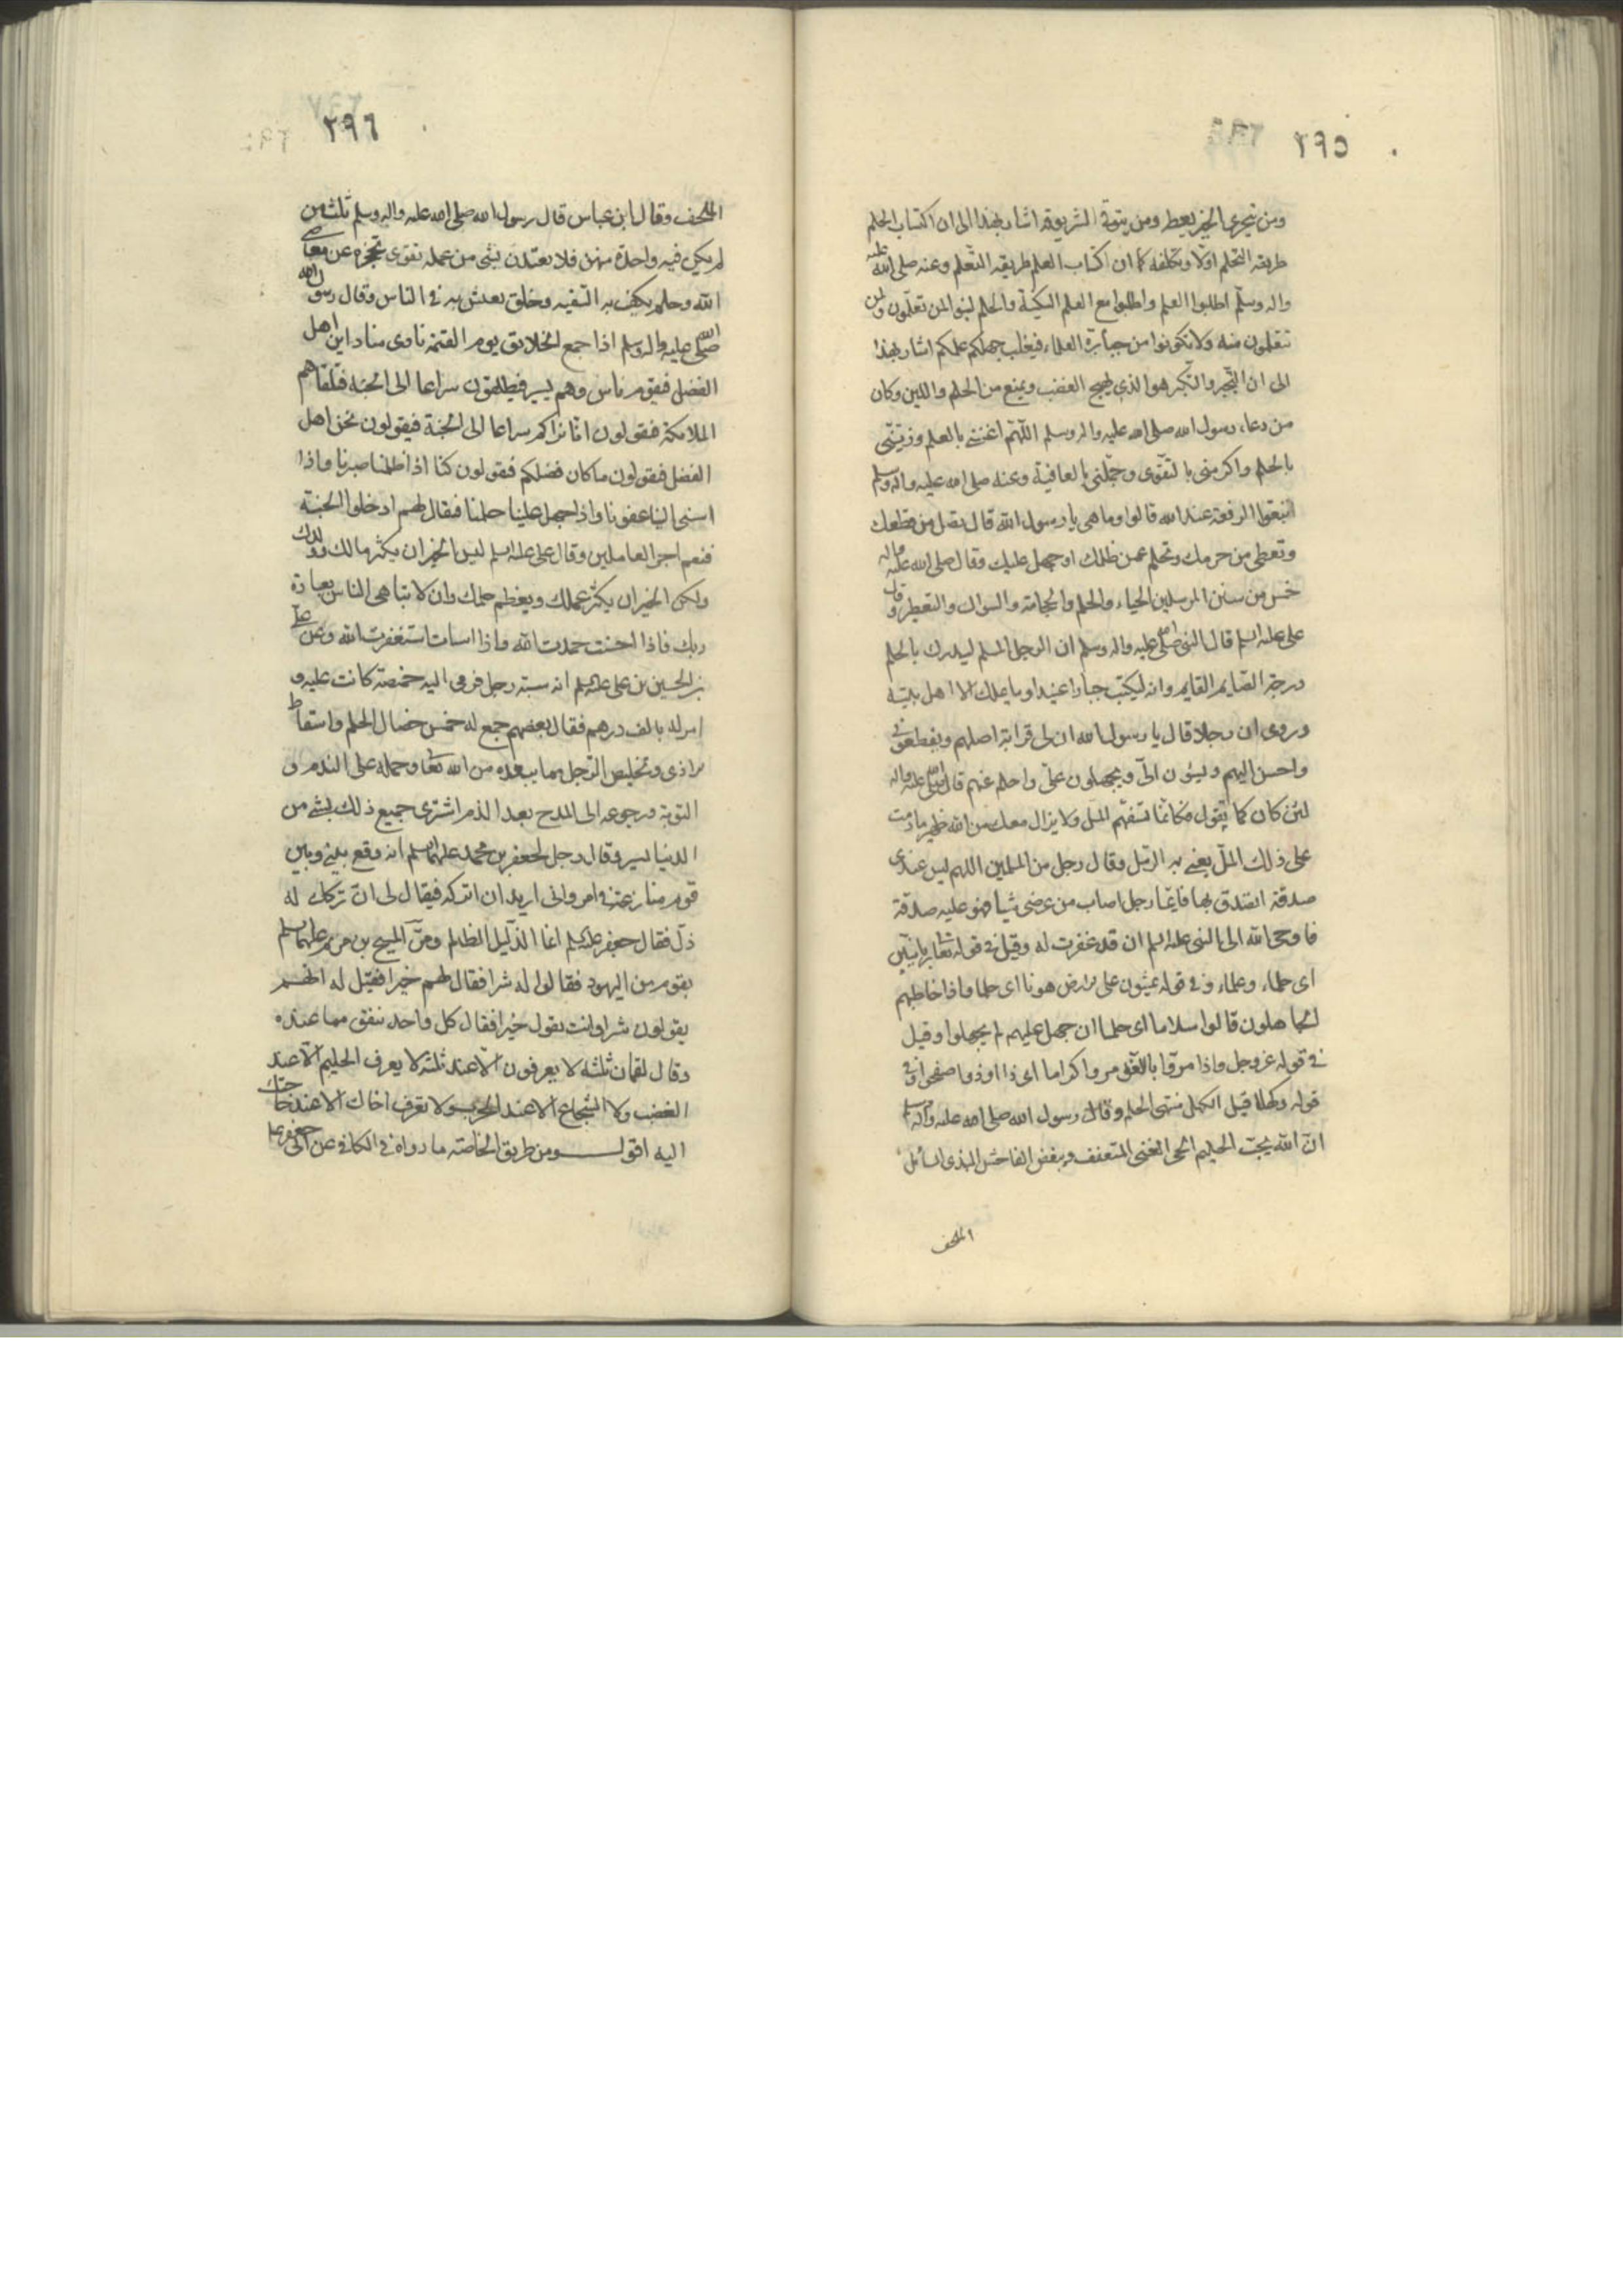 ٢٩٥
ومن يتحرى الخير يعطه ومن يتوق الشر يوقه اشار بهذا الى ان اكتساب الحلم
طريقه التحلم اولا وتكلفه كما ان اكتساب العلم طريقه التعلم وعنه صلى الله عليه
واله وسلم اطلبوا العلم واطلبوا مع العلم السكينة والحلم لينوا لمن تعلمون ولمن
تتعلمون منه ولا تكونوا من جبابرة العلماء فيغلب جهلكم علمكم اشار بهذا
الى ان التجبر والتكبر هو الذي يهيج الغضب ويمنع من الحلم واللين وكان
من دعاء رسول الله صلى الله عليه واله وسلم اللهم اغنني بالعلم وزيني
بالحلم واكرمني بالتقوى وجملني بالعافية وعنه صلى الله عليه واله وسلم
ابتغوا الرفعة عند الله قالوا وما هى يا رسول الله قال تصل من قطعك
وتعطى من حرمك وتحلم عمن ظلمك او جهل عليك وقال صلى الله عليه واله
خمس من سنن المرسلين الحياء والحلم والحجامة والسواك والتعطر وقال
على عليه السلم قال النبى صلى الله عليه واله وسلم ان الرجل المسلم ليدرك بالحلم
درجة الصايم القايم وانه ليكتب جبارا عنيدا وما يملك الا اهل بيته
وروى ان رجلا قال يا رسول الله ان لى قرابة اصلهم ويقطعونى
واحسن اليهم ويسيئون الىّ ويجهلون علىّ واحلم عنهم قال صلى الله عليه واله
لئن كان كما تقول فكانما تسفهم المل ولا يزال معك من الله ظهير ما دمت
على ذلك الملّ يعنى به الرمل وقال رجل من المسلمين اللهم ليس عندى
صدقة اتصدق بها فايما رجل اصاب من عرضى شيا فهو عليه صدقة
فاوحى الله الى النبى عليه السلم ان قد غفرت له وقيل فى قوله تعالى ربانيين
اى حلماء وعلماء وفى قوله يمشون على الارض هونا اى حلما واذا خاطبهم
الجاهلون قالوا سلاما اى حلما ان جهل عليهم لم يجهلوا وقيل
فى قوله عز وجل واذا مروا باللغو مروا كراما اى اذا اوذوا صفحوا وفى
قوله وكهلا قيل الكهل منتهى الحلم وقال رسول الله صلى الله عليه واله وسلم
ان الله يحب الحليم الحى الغنى المتعفف ويبغض الفاحش البذى السائل
الملحف
٢٩٦
الملحف وقال ابن عباس قال رسول الله صلى الله عليه واله وسلم ثلث من
لم يكن فيه واحدة منهن فلا تعتدن بشى من عمله تقوى تحجزه عن معاصى
الله وحلم يكف به السفيه وخلق يعيش به فى الناس وقال رسول الله
صلى الله عليه واله وسلم اذا جمع الخلايق يوم القيمة نادى مناد اين اهل
الفضل فيقوم ناس وهم يسير فيطلقون سراعا الى الجنة فتلقاهم
الملائكة فيقولون انا نراكم سراعا الى الجنة فيقولون نحن اهل
الفضل فيقولون ما كان فضلكم فيقولون كنا اذا ظلمنا صبرنا واذا
اسئ الينا عفونا واذا جهل علينا حلمنا فيقال لهم ادخلوا الجنة
فنعم اجر العاملين وقال على عليه السلم ليس الخير ان يكثر مالك وولدك
ولكن الخير ان يكثر عملك ويعظم حلمك وان لا تباهى الناس بعبادة
ربك فاذا احسنت حمدت الله واذا اسات استغفرت الله وعن على
بن الحسين بن على عليهم السلم انه سبه رجل فرمى اليه خميصة كانت عليه و
امر له بالف درهم فقال بعضهم جمع له خمس خصال الحلم واسقاط
الاذى وتخليص الرجل مما يبعده من الله تعالى وحمله على الندم و
التوبة ورجوعه الى المدح بعد الذم اشترى جميع ذلك بشئ من
الدنيا يسير وقال رجل لجعفر بن محمد عليهما السلم انه وقع بينى وبين
قوم منازعة فى امر وانى اريد ان اتركه فيقال لى ان تركك له
ذل فقال جعفر عليه السلم انما الذليل الظالم ومر المسيح بن مريم عليهما السلم
بقوم من اليهود فقالوا له شرا فقال لهم خيرا فقيل له انهم
يقولون شرا وانت تقول خيرا فقال كل واحد ينفق مما عنده
وقال لقمان ثلثة لا يعرفون الا عند ثلثة لا يعرف الحليم الا عند
الغضب ولا الشجاع الا عند الحرب ولا تعرف اخاك الا عند حاجتك
اليه اقول ومن طريق الخاصة ما رواه فى الكافى عن ابى جعفر عليه